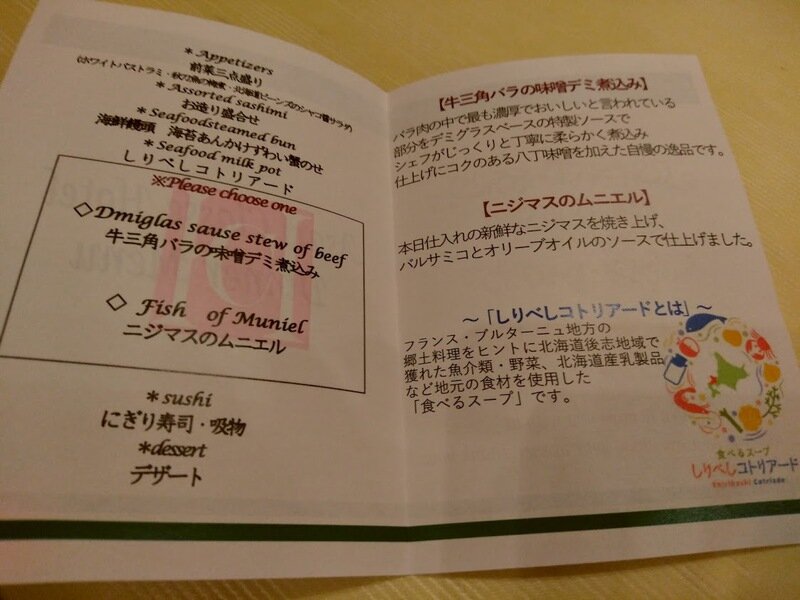 * Appetizers
前菜三点盛り
(ホワイトパストラミ・秋刀魚の梅煮・北海道ビーンズのシャコ醤サラダ)
* Assorted sashimi
お造り盛合せ
* Seafoodsteamed bun
海鮮饅頭 海苔あんかけずわい蟹のせ
* Seafood milk pot
しりべしコトリアード
※Please choose one
◇Dmiglas sause stew of beef
牛三角バラの味噌デミ煮込み
◇ Fish of Muniel
ニジマスのムニエル
*sushi
にぎり寿司・吸物
*dessert
デザート
【牛三角バラの味噌デミ煮込み】
バラ肉の中で最も濃厚でおいしいと言われている
部分をデミグラスベースの特製ソースで
シェフがじっくりと丁寧に柔らかく煮込み
仕上げにコクのある八丁味噌を加えた自慢の逸品です。
【ニジマスのムニエル】
本日仕入れの新鮮なニジマスを焼き上げ、
バルサミコとオリーブオイルのソースで仕上げました。
～「しりべしコトリアードとは」～
フランス・ブルターニュ地方の
郷土料理をヒントに北海道後志地域で
獲れた魚介類・野菜、北海道産乳製品
など地元の食材を使用した
「食べるスープ」です。
食べるスープ
しりべしコトリアード
Shiribeshi Cotriade